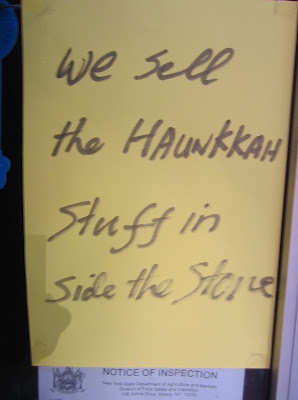 We sell
the HAUNKKAH
Stuff in
side the Store
NOTICE OF INSPECTION
New York State Department of Agriculture and Markets
Division of Food Safety and Inspection
10B Airline Drive, Albany, NY 12235